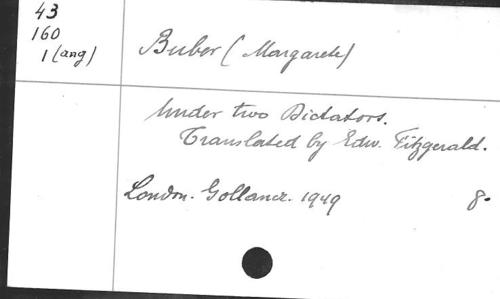 43
160
1 (ang)
Buber (Margarete)
Under two Dictators.
Translated by Edw. Fitzgerald.
London. Gollancz. 1949 8°